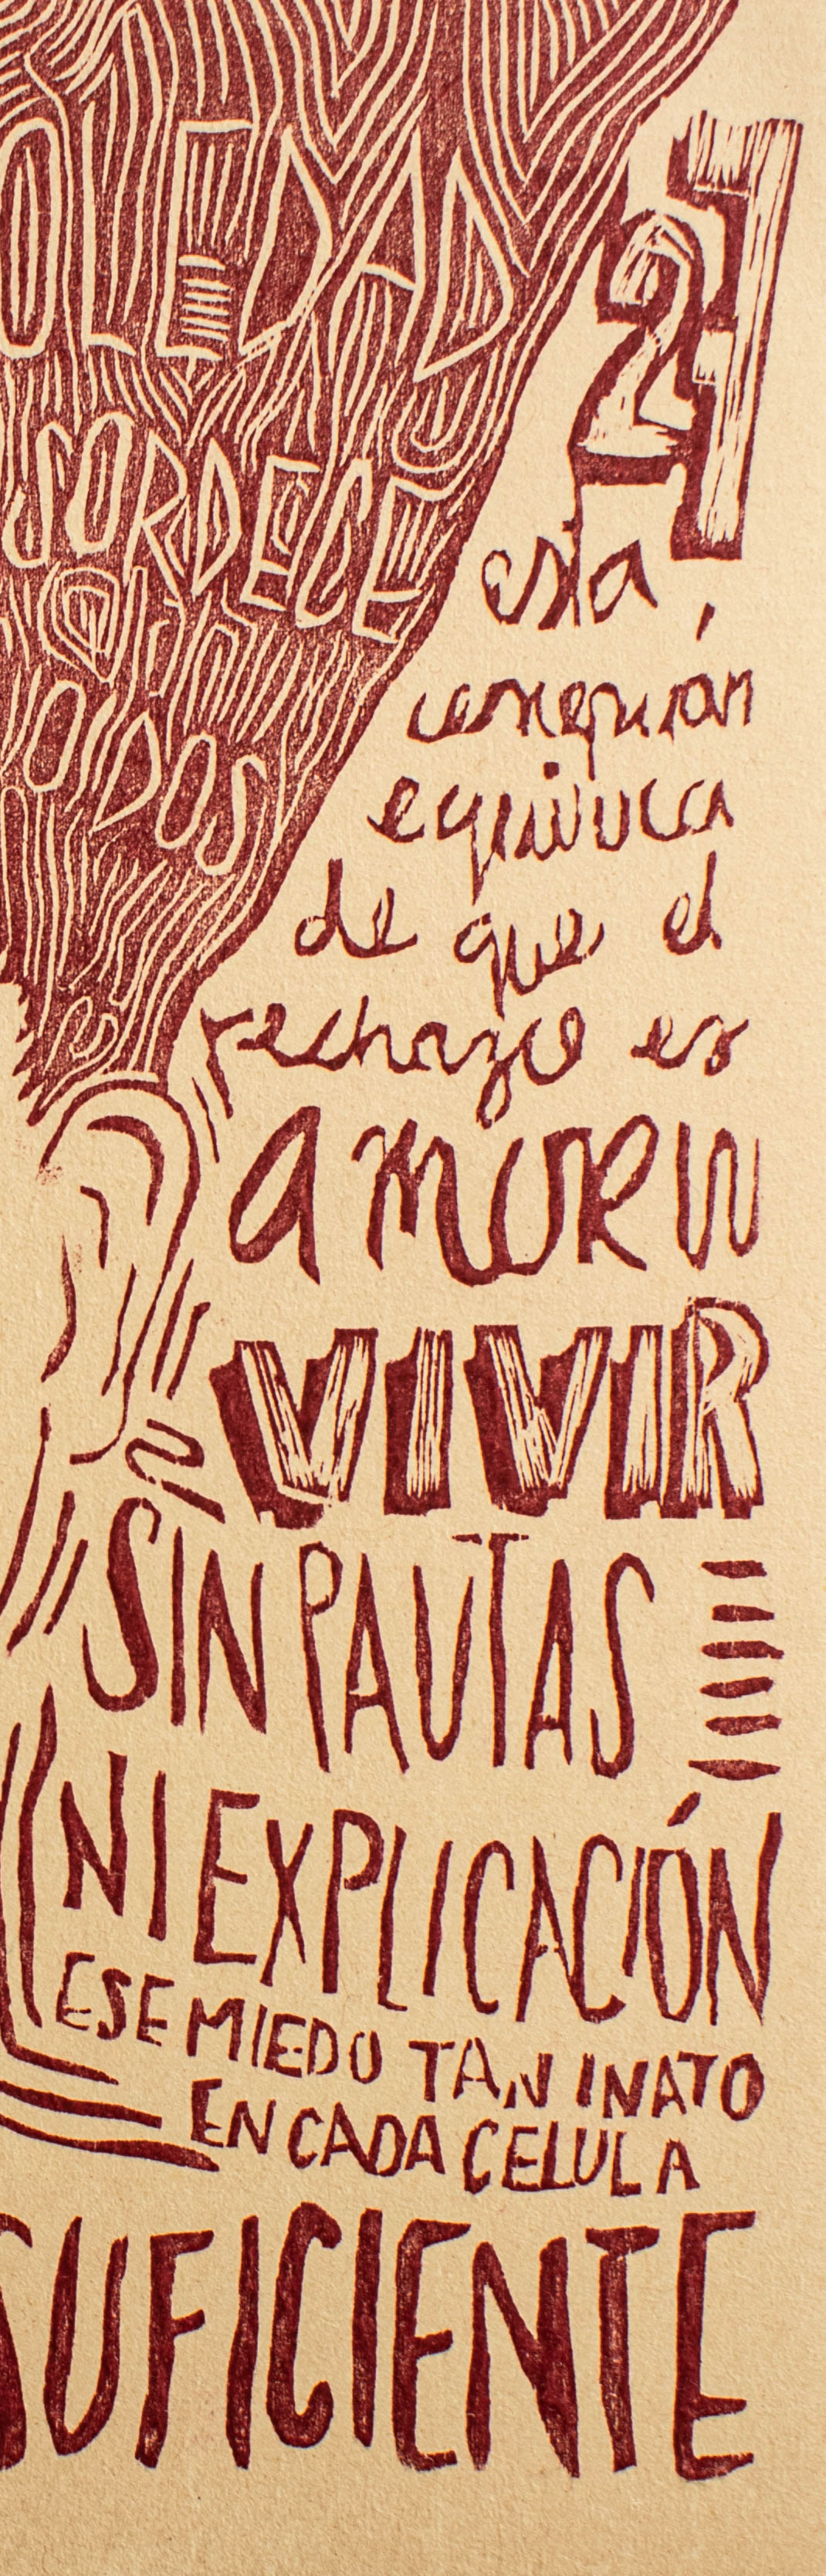 OLEDAD
SORDECE
OIDOS
27
esta
concepción
equivoca
de que el
rechazo es
amor
VIVIR
SIN PAUTAS
NI EXPLICACIÓN
ESE MIEDO TAN INATO
EN CADA CELULA
SUFICIENTE